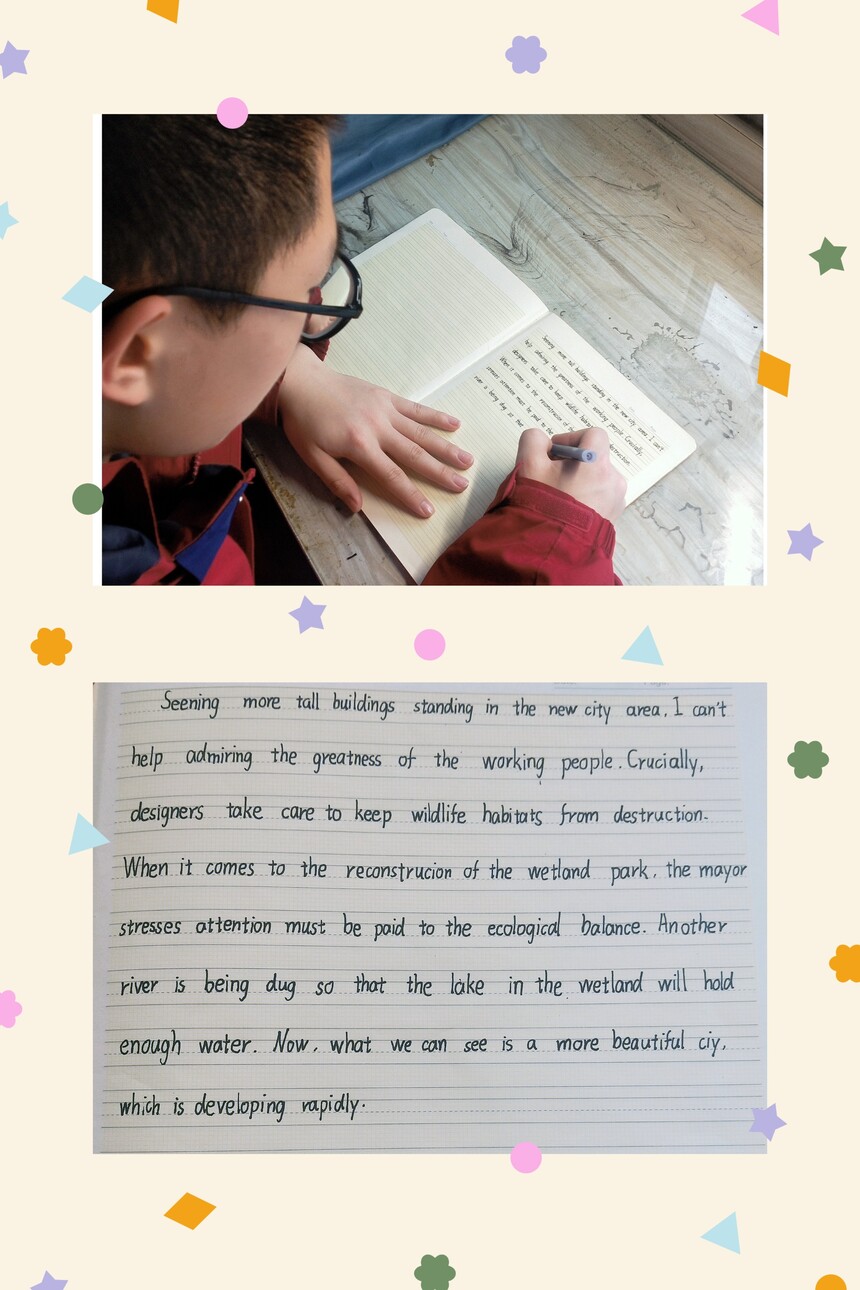 Seening more tall buildings standing in the new city area, I can't
help admiring the greatness of the working people. Crucially,
designers take care to keep wildlife habitats from destruction.
When it comes to the reconstrucion of the wetland park, the mayor
stresses attention must be paid to the ecological balance. Another
river is being dug so that the lake in the wetland will hold
enough water. Now, what we can see is a more beautiful ciy,
which is developing rapidly.